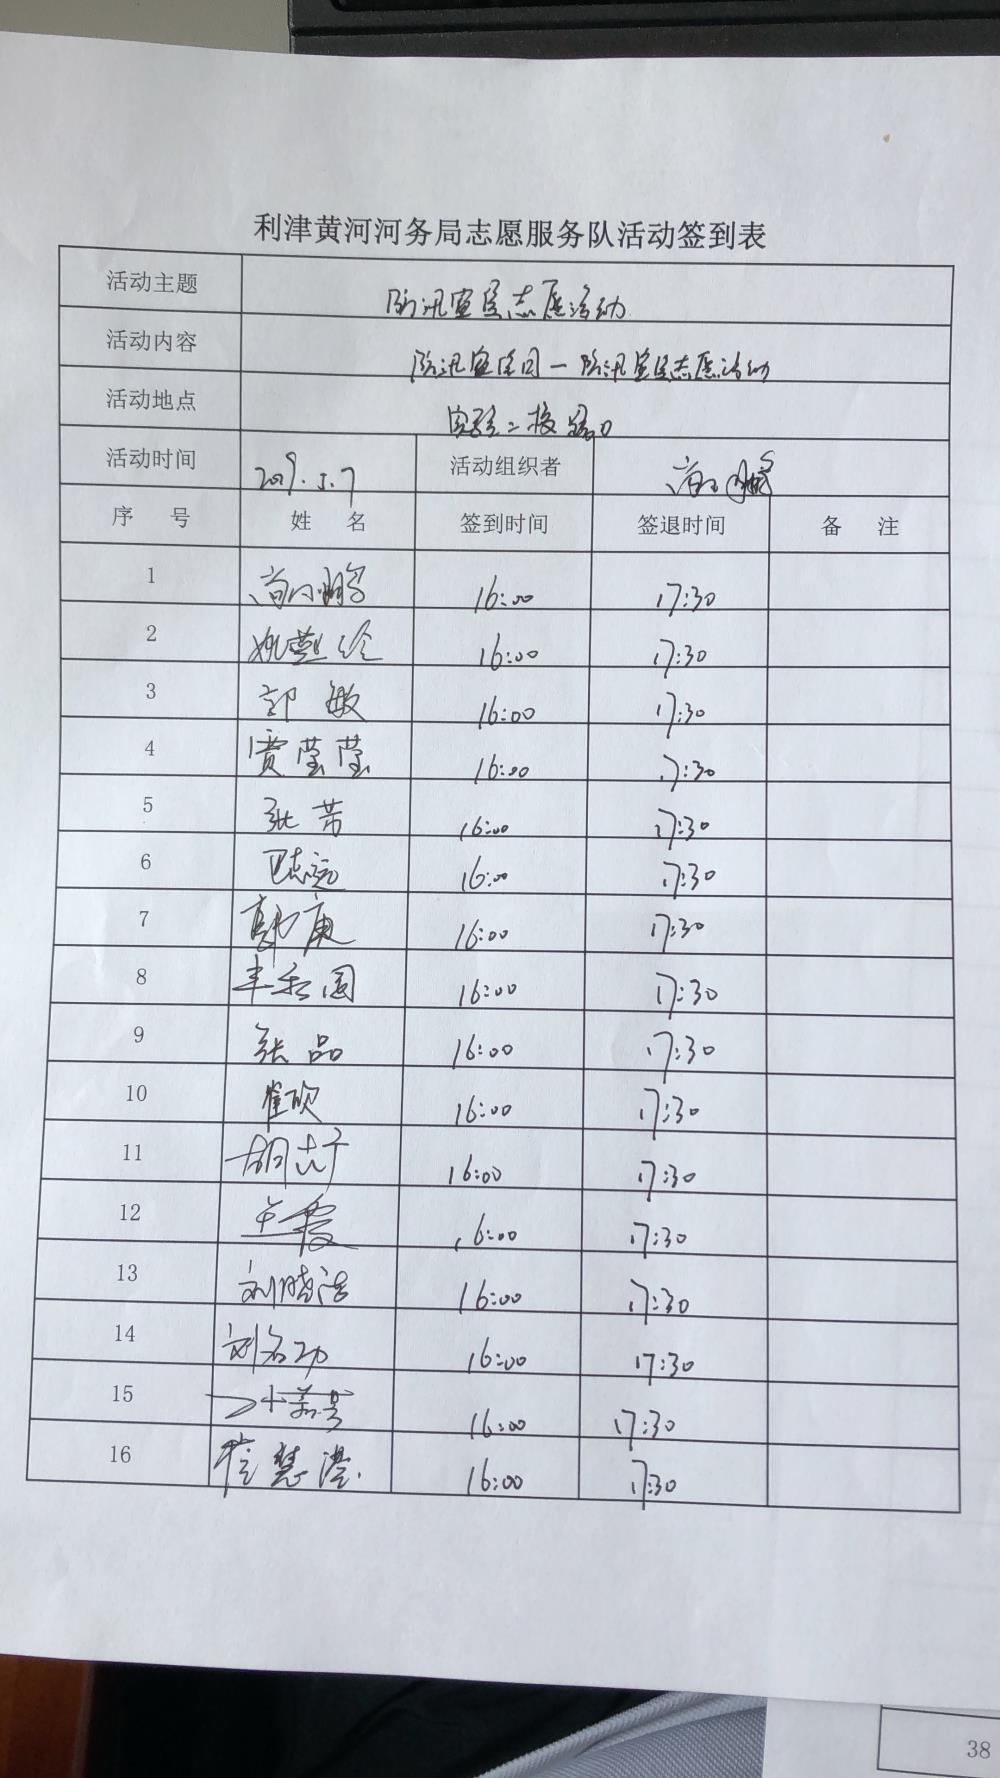 利津黄河河务局志愿服务队活动签到表
活动主题 防汛宣传志愿活动
活动内容 防汛宣传周一防汛宣传志愿活动
活动地点 实验二校路口
活动时间 2019.5.7 活动组织者
序号 姓名 签到时间 签退时间 备注
1 16:00 17:30
2 16:00 17:30
3 郭敏 16:00 17:30
4 贾莹莹 16:00 17:30
5 张芳 16:00 17:30
6 志远 16:00 17:30
7 16:00 17:30
8 16:00 17:30
9 张品 16:00 17:30
10 崔欣 16:00 17:30
11 胡 16:00 17:30
12 王 16:00 17:30
13 刘晓洁 16:00 17:30
14 刘名功 16:00 17:30
15 16:00 17:30
16 崔慧滢 16:00 17:30
38